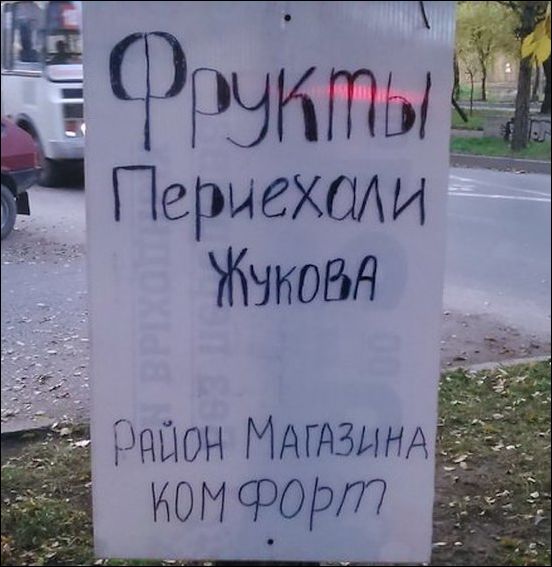 Фрукты
Периехали
Жукова
Район Магазина
Комфорт